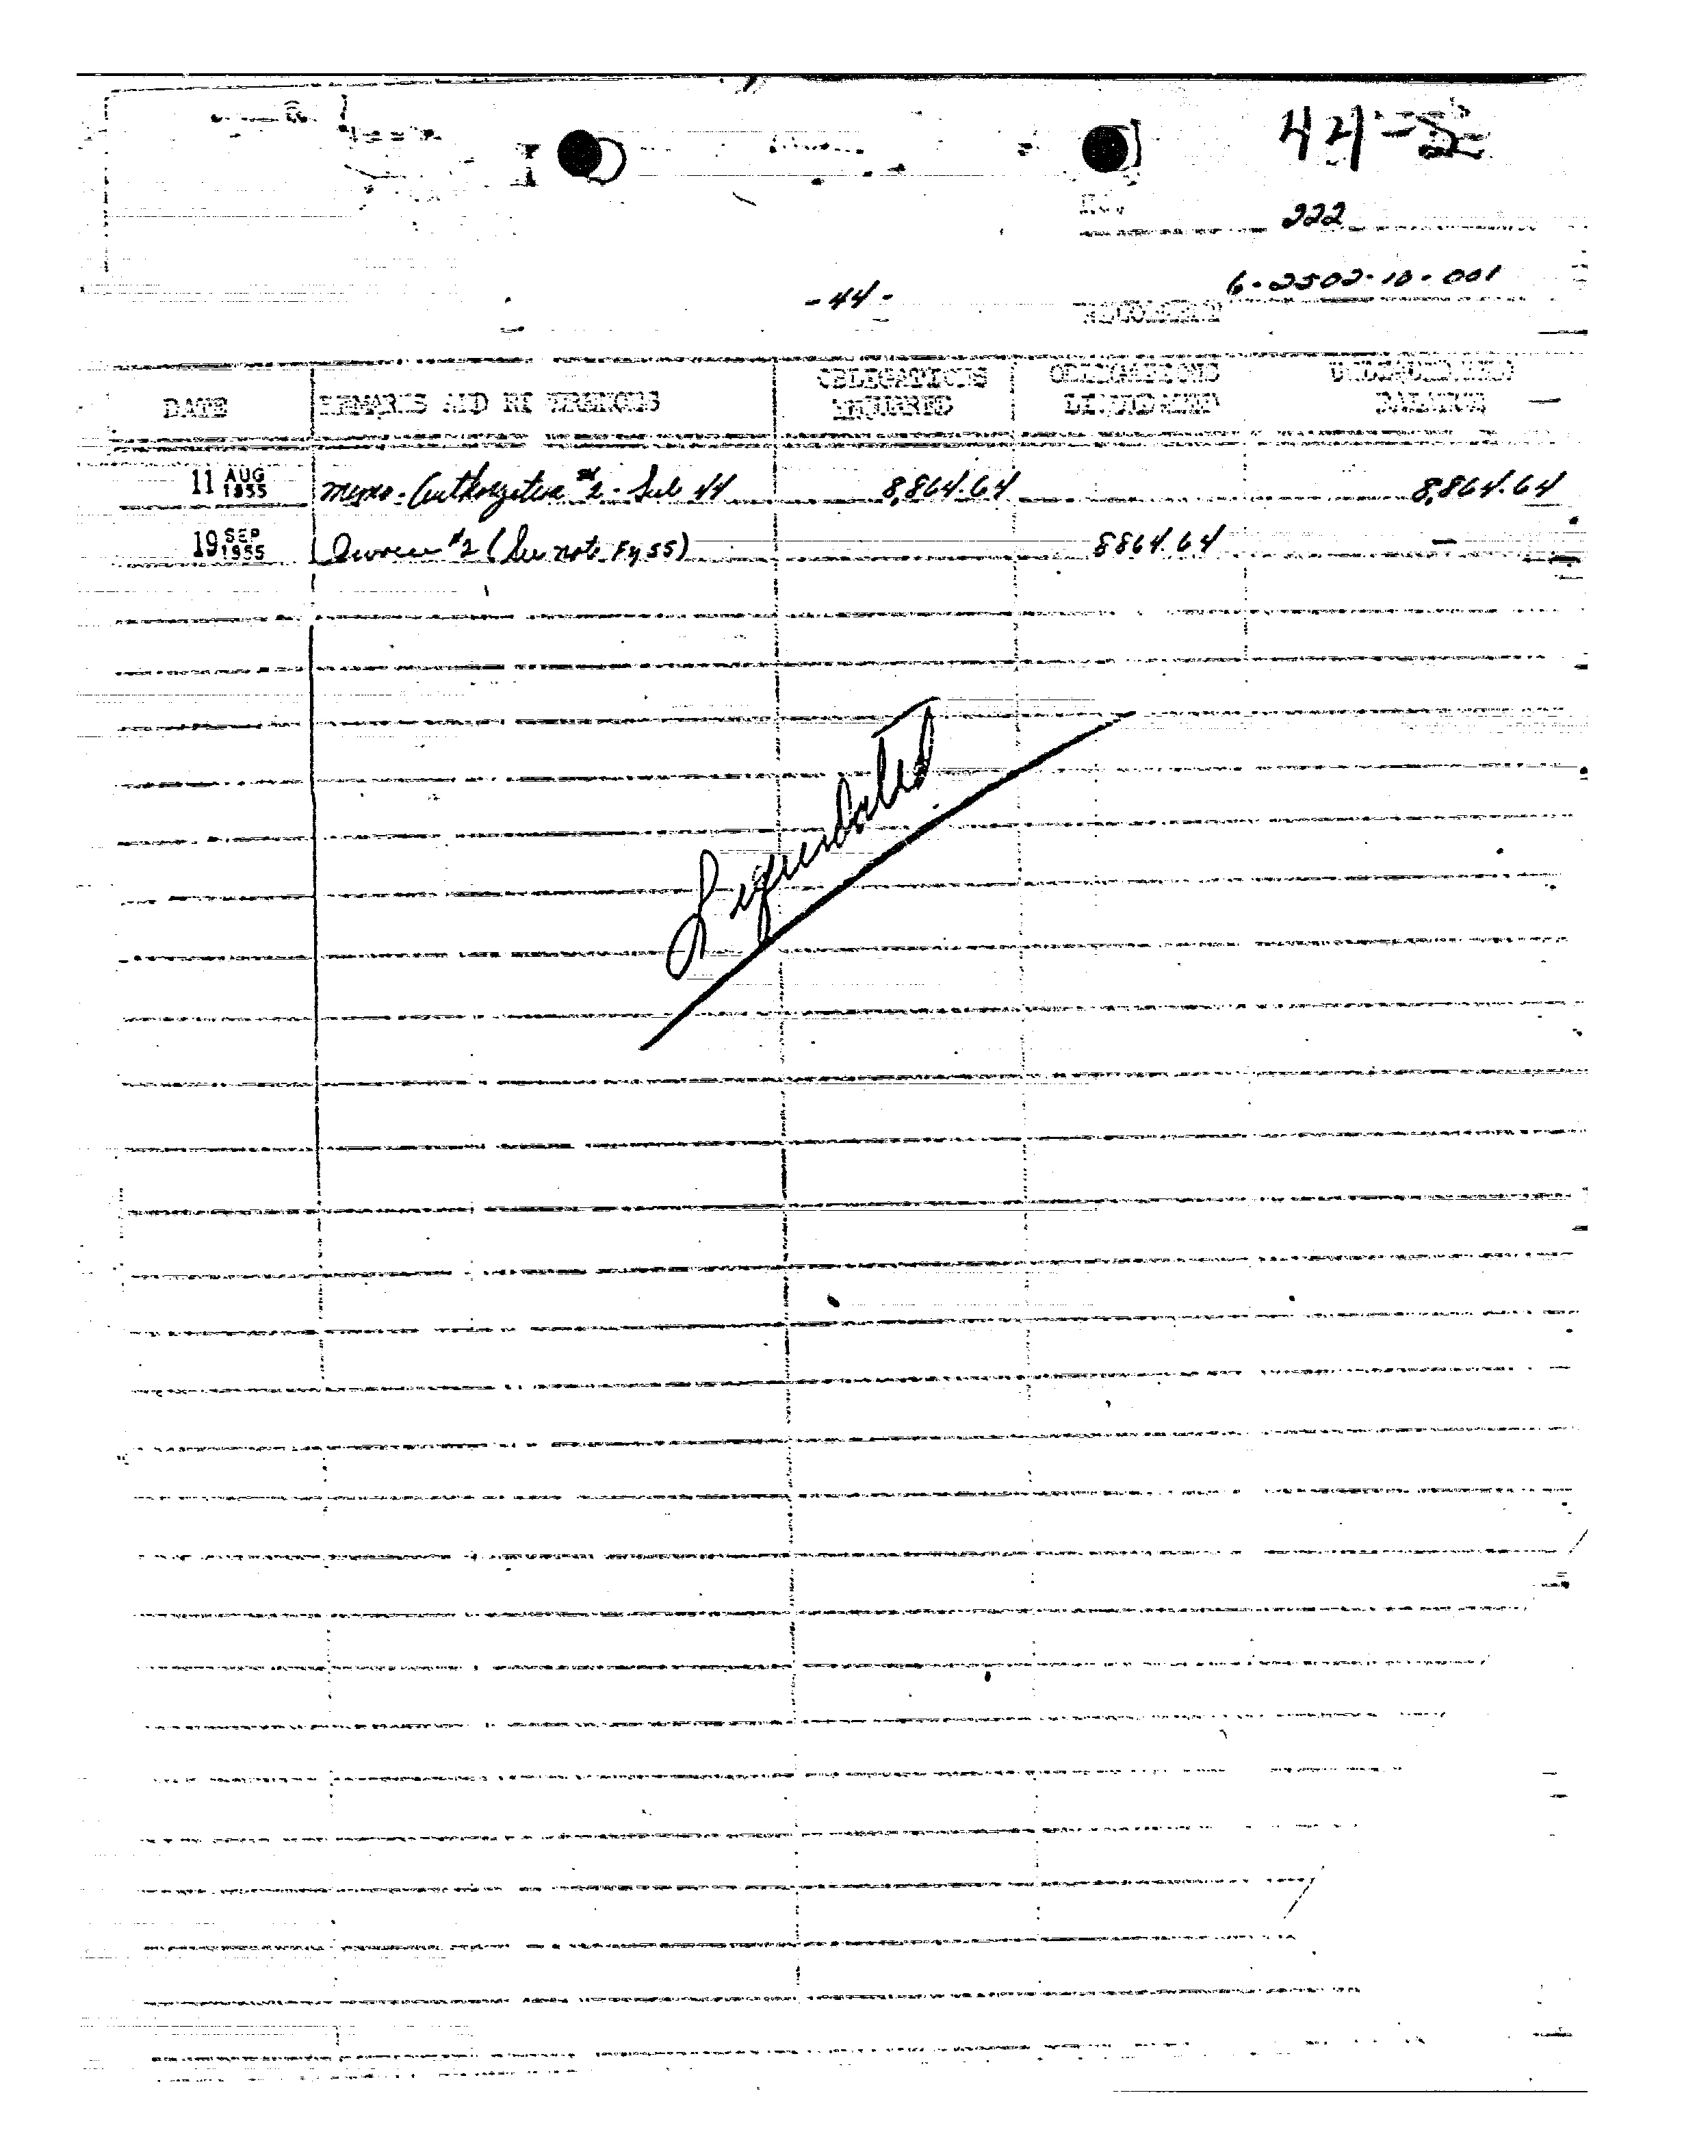 44-2
222
6-2502-10-001
-44-
DATE REMARKS AND REFERENCES OBLIGATIONS INCURRED OBLIGATIONS LIQUIDATED UNLIQUIDATED BALANCE
11 AUG 1955 memo-Authorization #2 - Sub 44 8,864.64 8,864.64
19 SEP 1955 Invoice #2 (See note Fy 55) 8864.64 —
Liquidated